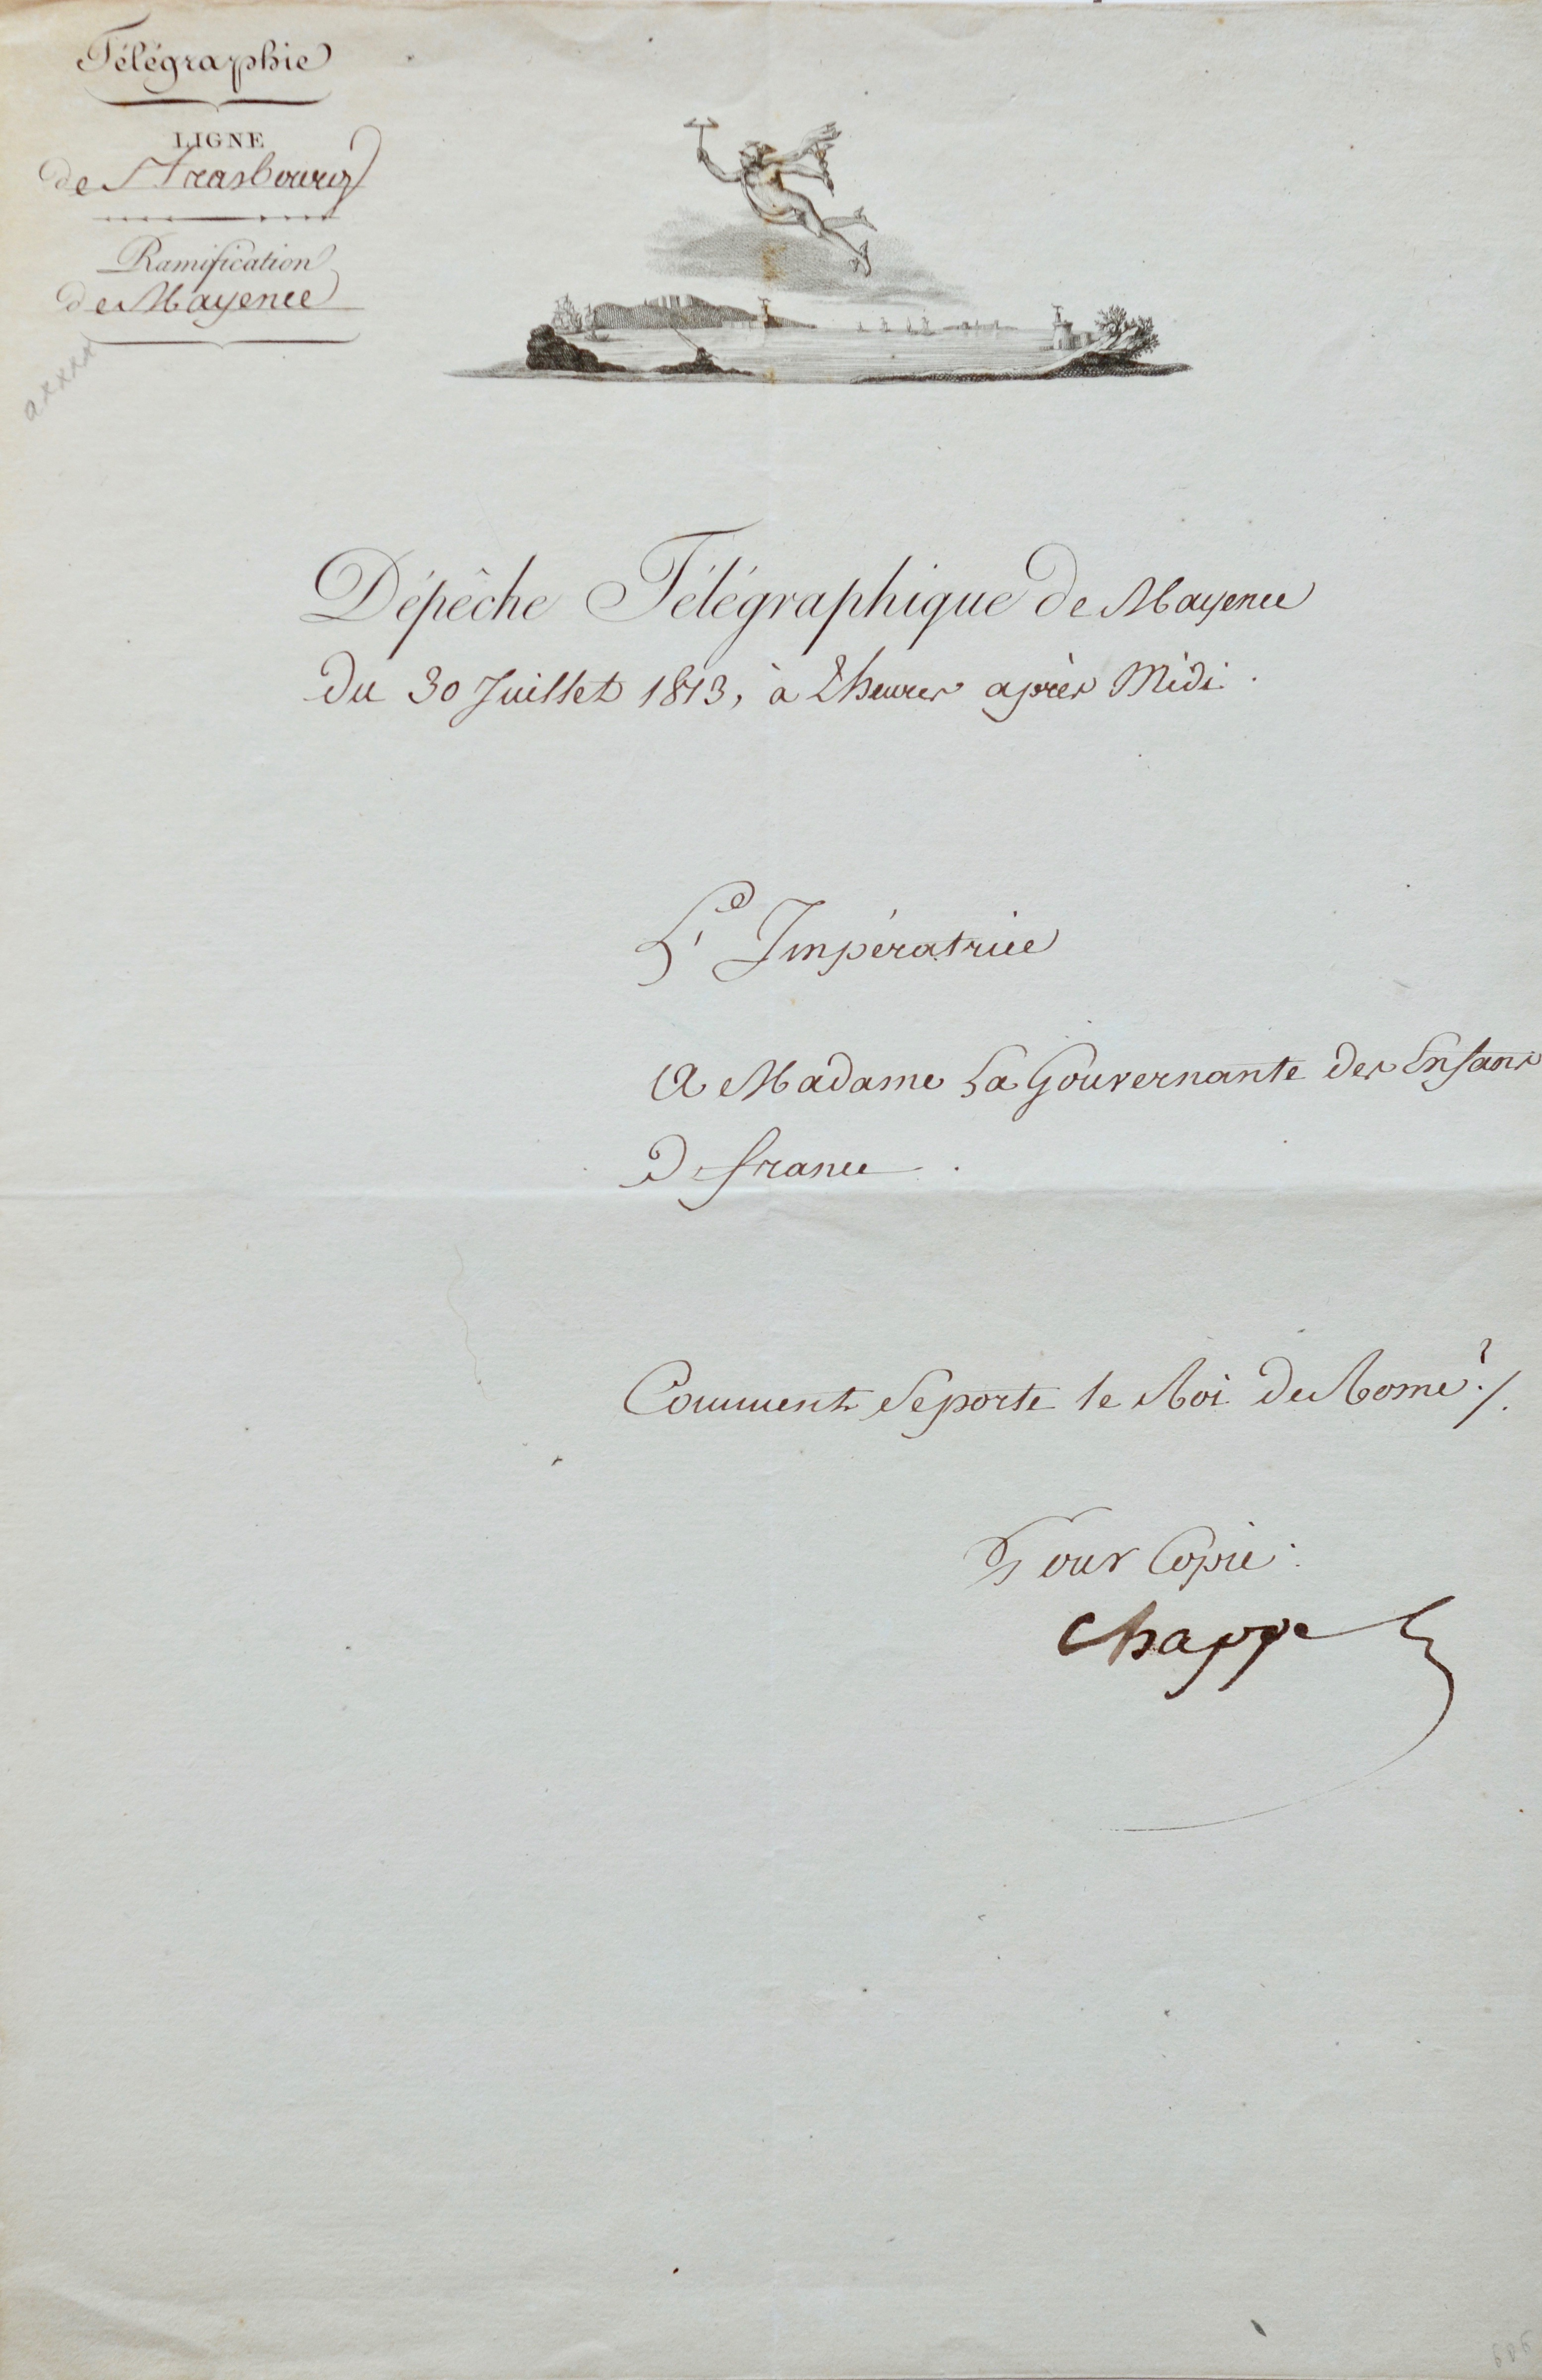 Télégraphie
LIGNE
de Strasbourg
Ramification
de Mayence
axxxx
Dépêche Télégraphique de Mayence
du 30 Juillet 1813, à 2 heures après Midi.
L'Impératrice
A Madame La Gouvernante des Enfans
De france.
Comment se porte le Roi de Rome?/.
Pour Copie:
Chappe